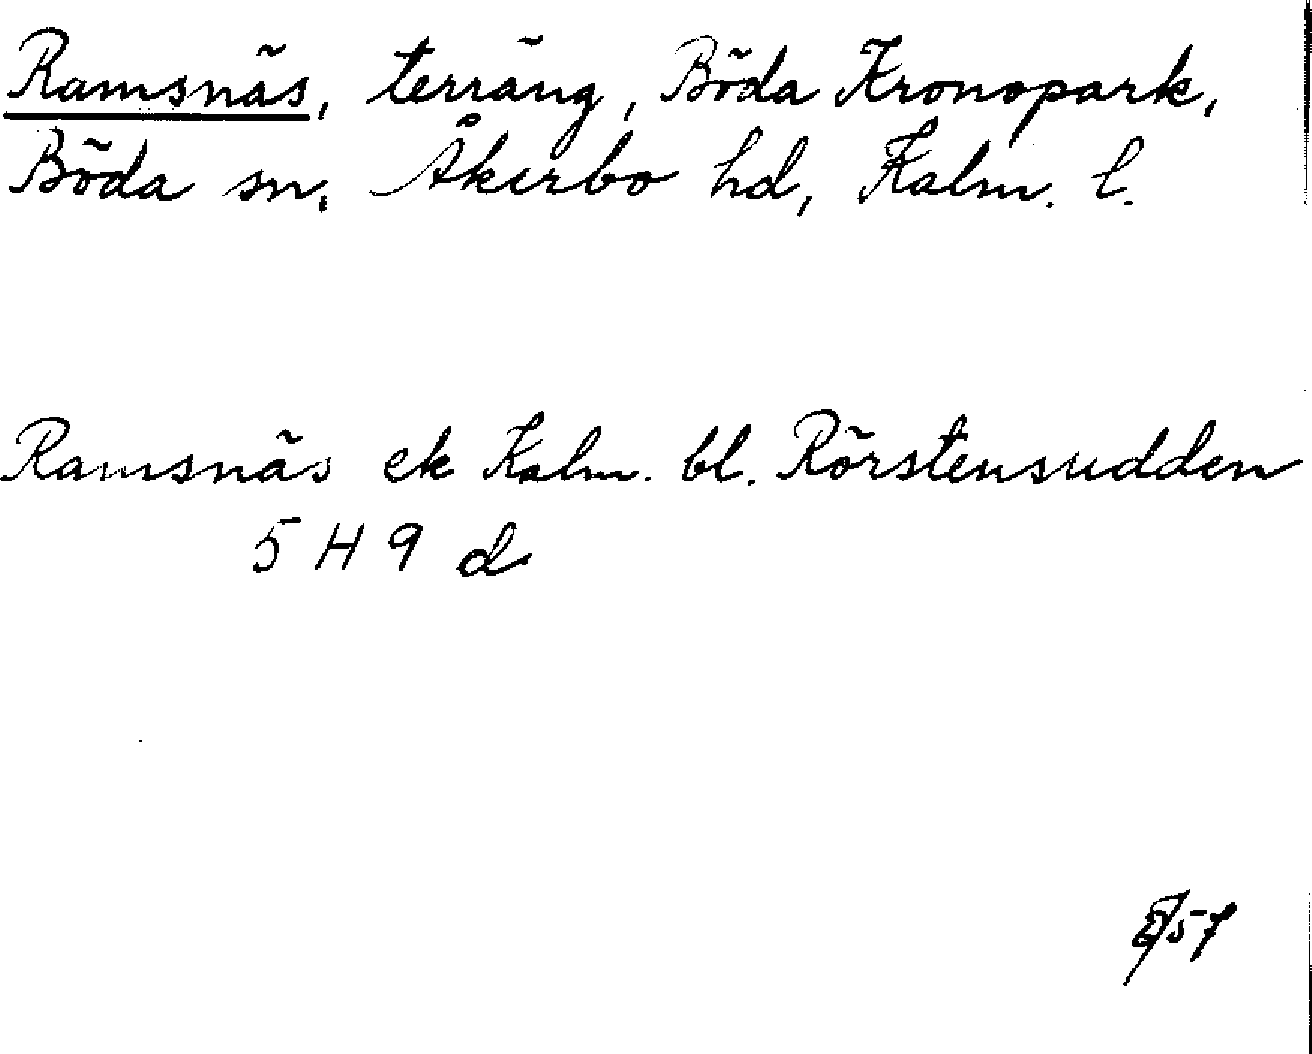 Ramsnäs, terräng, Böda Kronopark,
Böda sn, Åkerbo hd, Kalm. l.
Ramsnäs ek Kalm. bl. Rörstensudden
5 H 9 d